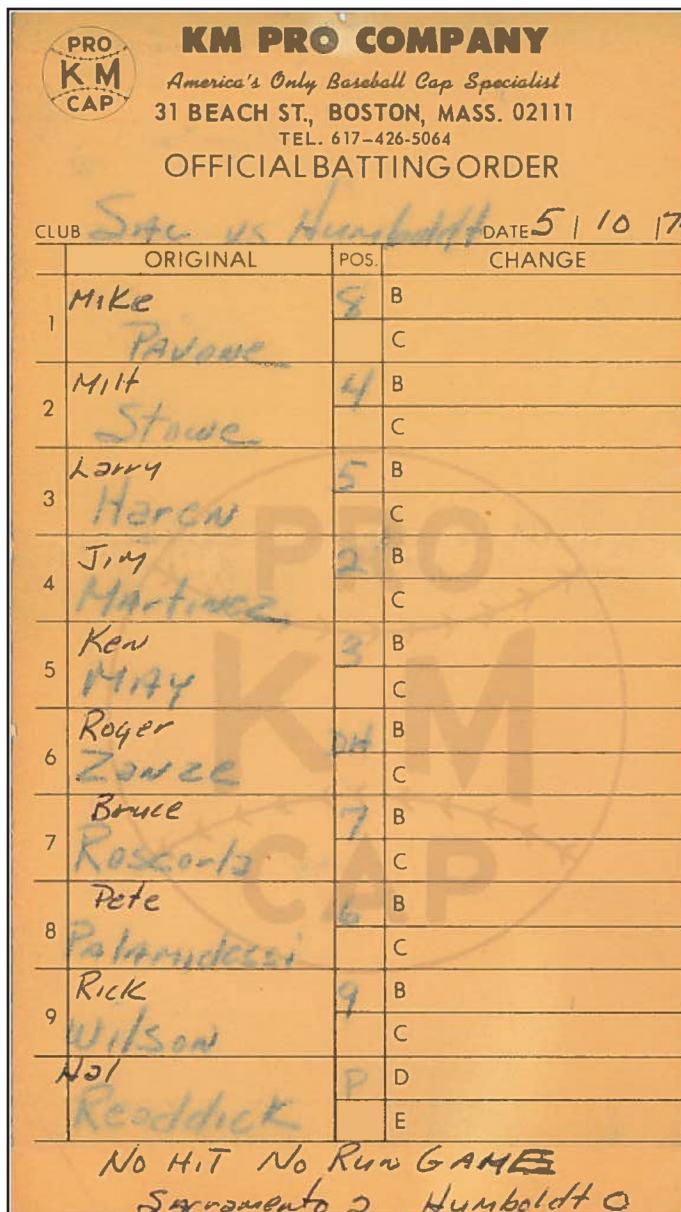 PRO
KM
CAP
KM PRO COMPANY
America's Only Baseball Cap Specialist
31 BEACH ST., BOSTON, MASS. 02111
TEL. 617-426-5064
OFFICIAL BATTING ORDER
CLUB Sac vs Humboldt DATE 5 | 10 | 7
ORIGINAL POS. CHANGE
1 Mike 8 B
Pavone C
2 Milt 4 B
Stowe C
3 Larry 5 B
Haren C
4 Jim 2 B
Martinez C
5 Ken 3 B
MAY C
6 Roger DH B
Zanze C
7 Bruce 7 B
Roscorla C
8 Pete 6 B
Palamidessi C
9 Rick 9 B
Wilson C
Hal P D
Readdick E
PRO
KM
CAP
NO HIT NO RUN GAME
Sacramento 2 Humboldt 0